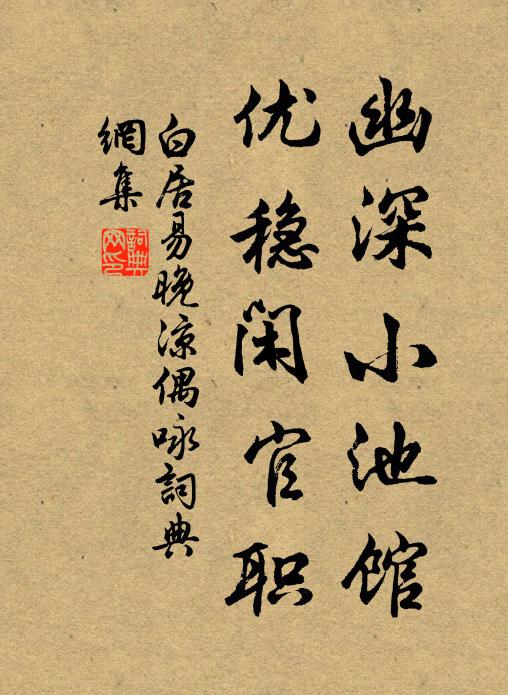 幽深小池馆
优稳闲官职
白居易晚凉偶咏詞典
網集
詞典
网印